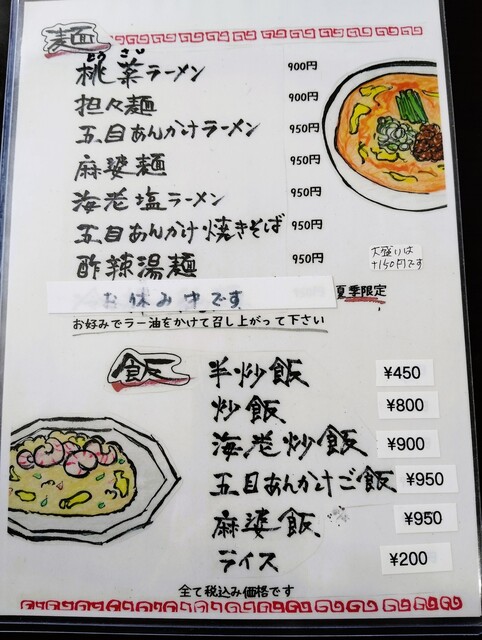 麺
とうさい
桃菜ラーメン 900円
担々麺 900円
五目あんかけラーメン 950円
麻婆麺 950円
海老塩ラーメン 950円
五目あんかけ焼きそば 950円
酢辣湯麺 950円
大盛りは
+150円です
お休み中です
夏季限定
お好みでラー油をかけて召し上がって下さい
飯
半炒飯 ¥450
炒飯 ¥800
海老炒飯 ¥900
五目あんかけご飯 ¥950
麻婆飯 ¥950
ライス ¥200
全て税込み価格です